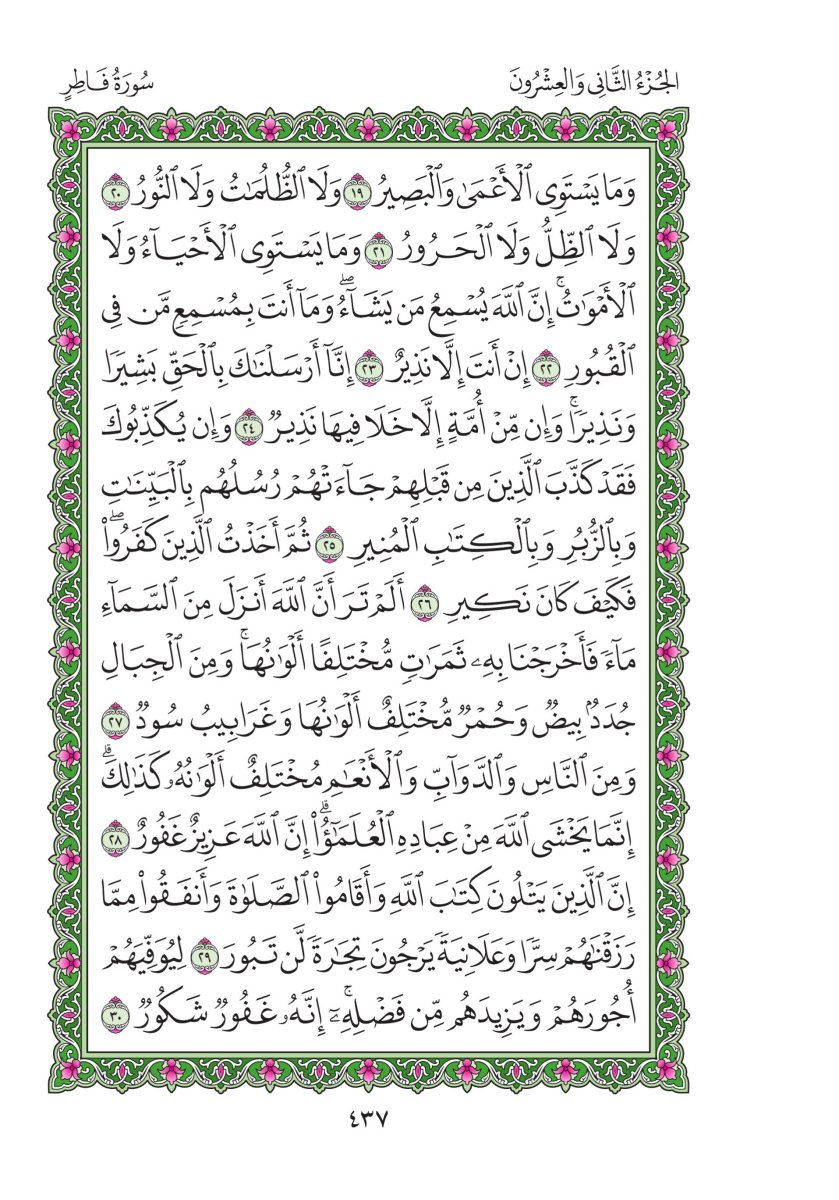 الجُزْءُ الثَّانِي وَالعِشْرُونَ
سُورَةُ فَاطِرٍ
وَمَا يَسْتَوِى ٱلْأَعْمَىٰ وَٱلْبَصِيرُ ١٩ وَلَا ٱلظُّلُمَٰتُ وَلَا ٱلنُّورُ ٢٠
وَلَا ٱلظِّلُّ وَلَا ٱلْحَرُورُ ٢١ وَمَا يَسْتَوِى ٱلْأَحْيَآءُ وَلَا
ٱلْأَمْوَٰتُۚ إِنَّ ٱللَّهَ يُسْمِعُ مَن يَشَآءُۖ وَمَآ أَنتَ بِمُسْمِعٍ مَّن فِى
ٱلْقُبُورِ ٢٢ إِنْ أَنتَ إِلَّا نَذِيرٌ ٢٣ إِنَّآ أَرْسَلْنَٰكَ بِٱلْحَقِّ بَشِيرًا
وَنَذِيرًاۚ وَإِن مِّنْ أُمَّةٍ إِلَّا خَلَا فِيهَا نَذِيرٌ ٢٤ وَإِن يُكَذِّبُوكَ
فَقَدْ كَذَّبَ ٱلَّذِينَ مِن قَبْلِهِمْ جَآءَتْهُمْ رُسُلُهُم بِٱلْبَيِّنَٰتِ
وَبِٱلزُّبُرِ وَبِٱلْكِتَٰبِ ٱلْمُنِيرِ ٢٥ ثُمَّ أَخَذْتُ ٱلَّذِينَ كَفَرُوا۟ۖ
فَكَيْفَ كَانَ نَكِيرِ ٢٦ أَلَمْ تَرَ أَنَّ ٱللَّهَ أَنزَلَ مِنَ ٱلسَّمَآءِ
مَآءً فَأَخْرَجْنَا بِهِۦ ثَمَرَٰتٍ مُّخْتَلِفًا أَلْوَٰنُهَاۚ وَمِنَ ٱلْجِبَالِ
جُدَدٌۢ بِيضٌ وَحُمْرٌ مُّخْتَلِفٌ أَلْوَٰنُهَا وَغَرَابِيبُ سُودٌ ٢٧
وَمِنَ ٱلنَّاسِ وَٱلدَّوَآبِّ وَٱلْأَنْعَٰمِ مُخْتَلِفٌ أَلْوَٰنُهُۥ كَذَٰلِكَۗ
إِنَّمَا يَخْشَى ٱللَّهَ مِنْ عِبَادِهِ ٱلْعُلَمَٰٓؤُا۟ۗ إِنَّ ٱللَّهَ عَزِيزٌ غَفُورٌ ٢٨
إِنَّ ٱلَّذِينَ يَتْلُونَ كِتَٰبَ ٱللَّهِ وَأَقَامُوا۟ ٱلصَّلَوٰةَ وَأَنفَقُوا۟ مِمَّا
رَزَقْنَٰهُمْ سِرًّا وَعَلَانِيَةً يَرْجُونَ تِجَٰرَةً لَّن تَبُورَ ٢٩ لِيُوَفِّيَهُمْ
أُجُورَهُمْ وَيَزِيدَهُم مِّن فَضْلِهِۦٓۚ إِنَّهُۥ غَفُورٌ شَكُورٌ ٣٠
٤٣٧